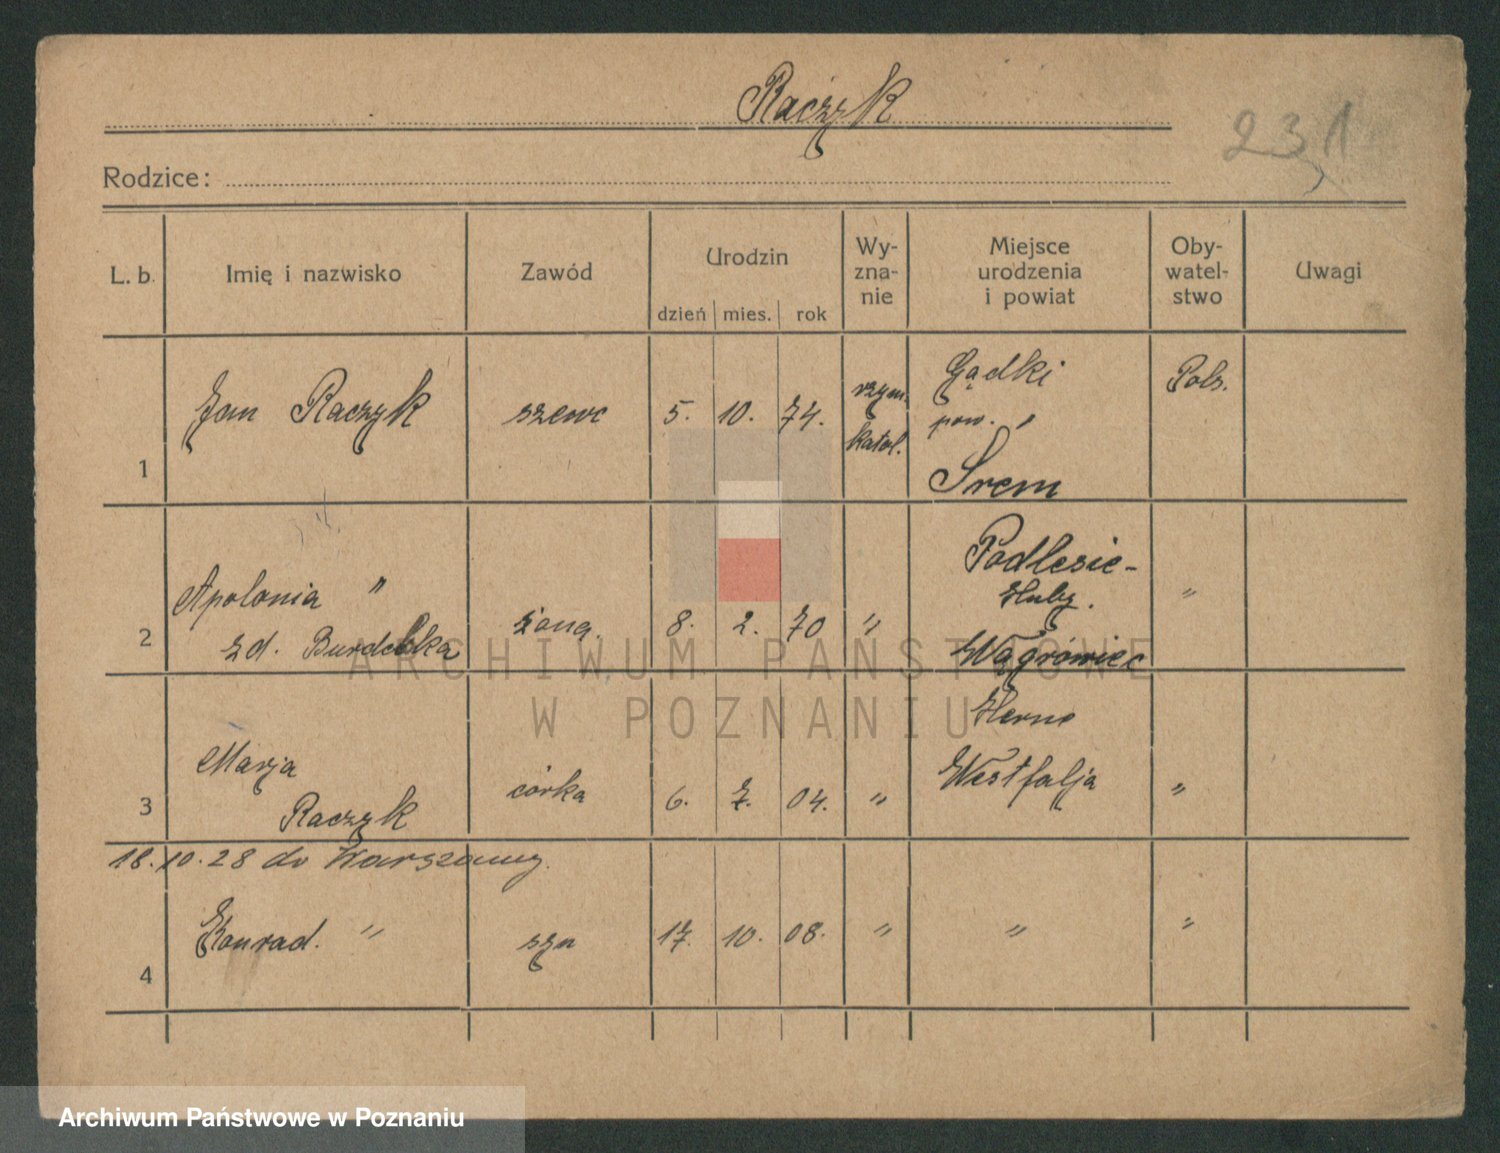 Raczyk
231
Rodzice:
L. b. Imię i nazwisko Zawód Urodzin dzień mies. rok Wy-zna-nie Miejsce urodzenia i powiat Oby-watel-stwo Uwagi
1 Jan Raczyk szewc 5. 10. 74. rzym. katol. Gądki pow. Śrem Pols.
2 Apolonia " zd. żona. 8. 2. 70 " Podlesie- Huby. Wągrówiec "
3 Marja Raczyk córka 6. 7. 04. " Herne Westfalja "
18.10.28 do Warszawy.
4 Konrad. " syn 17. 10. 08. " " "
ARCHIWUM PAŃSTWOWE
W POZNANIU
Archiwum Państwowe w Poznaniu